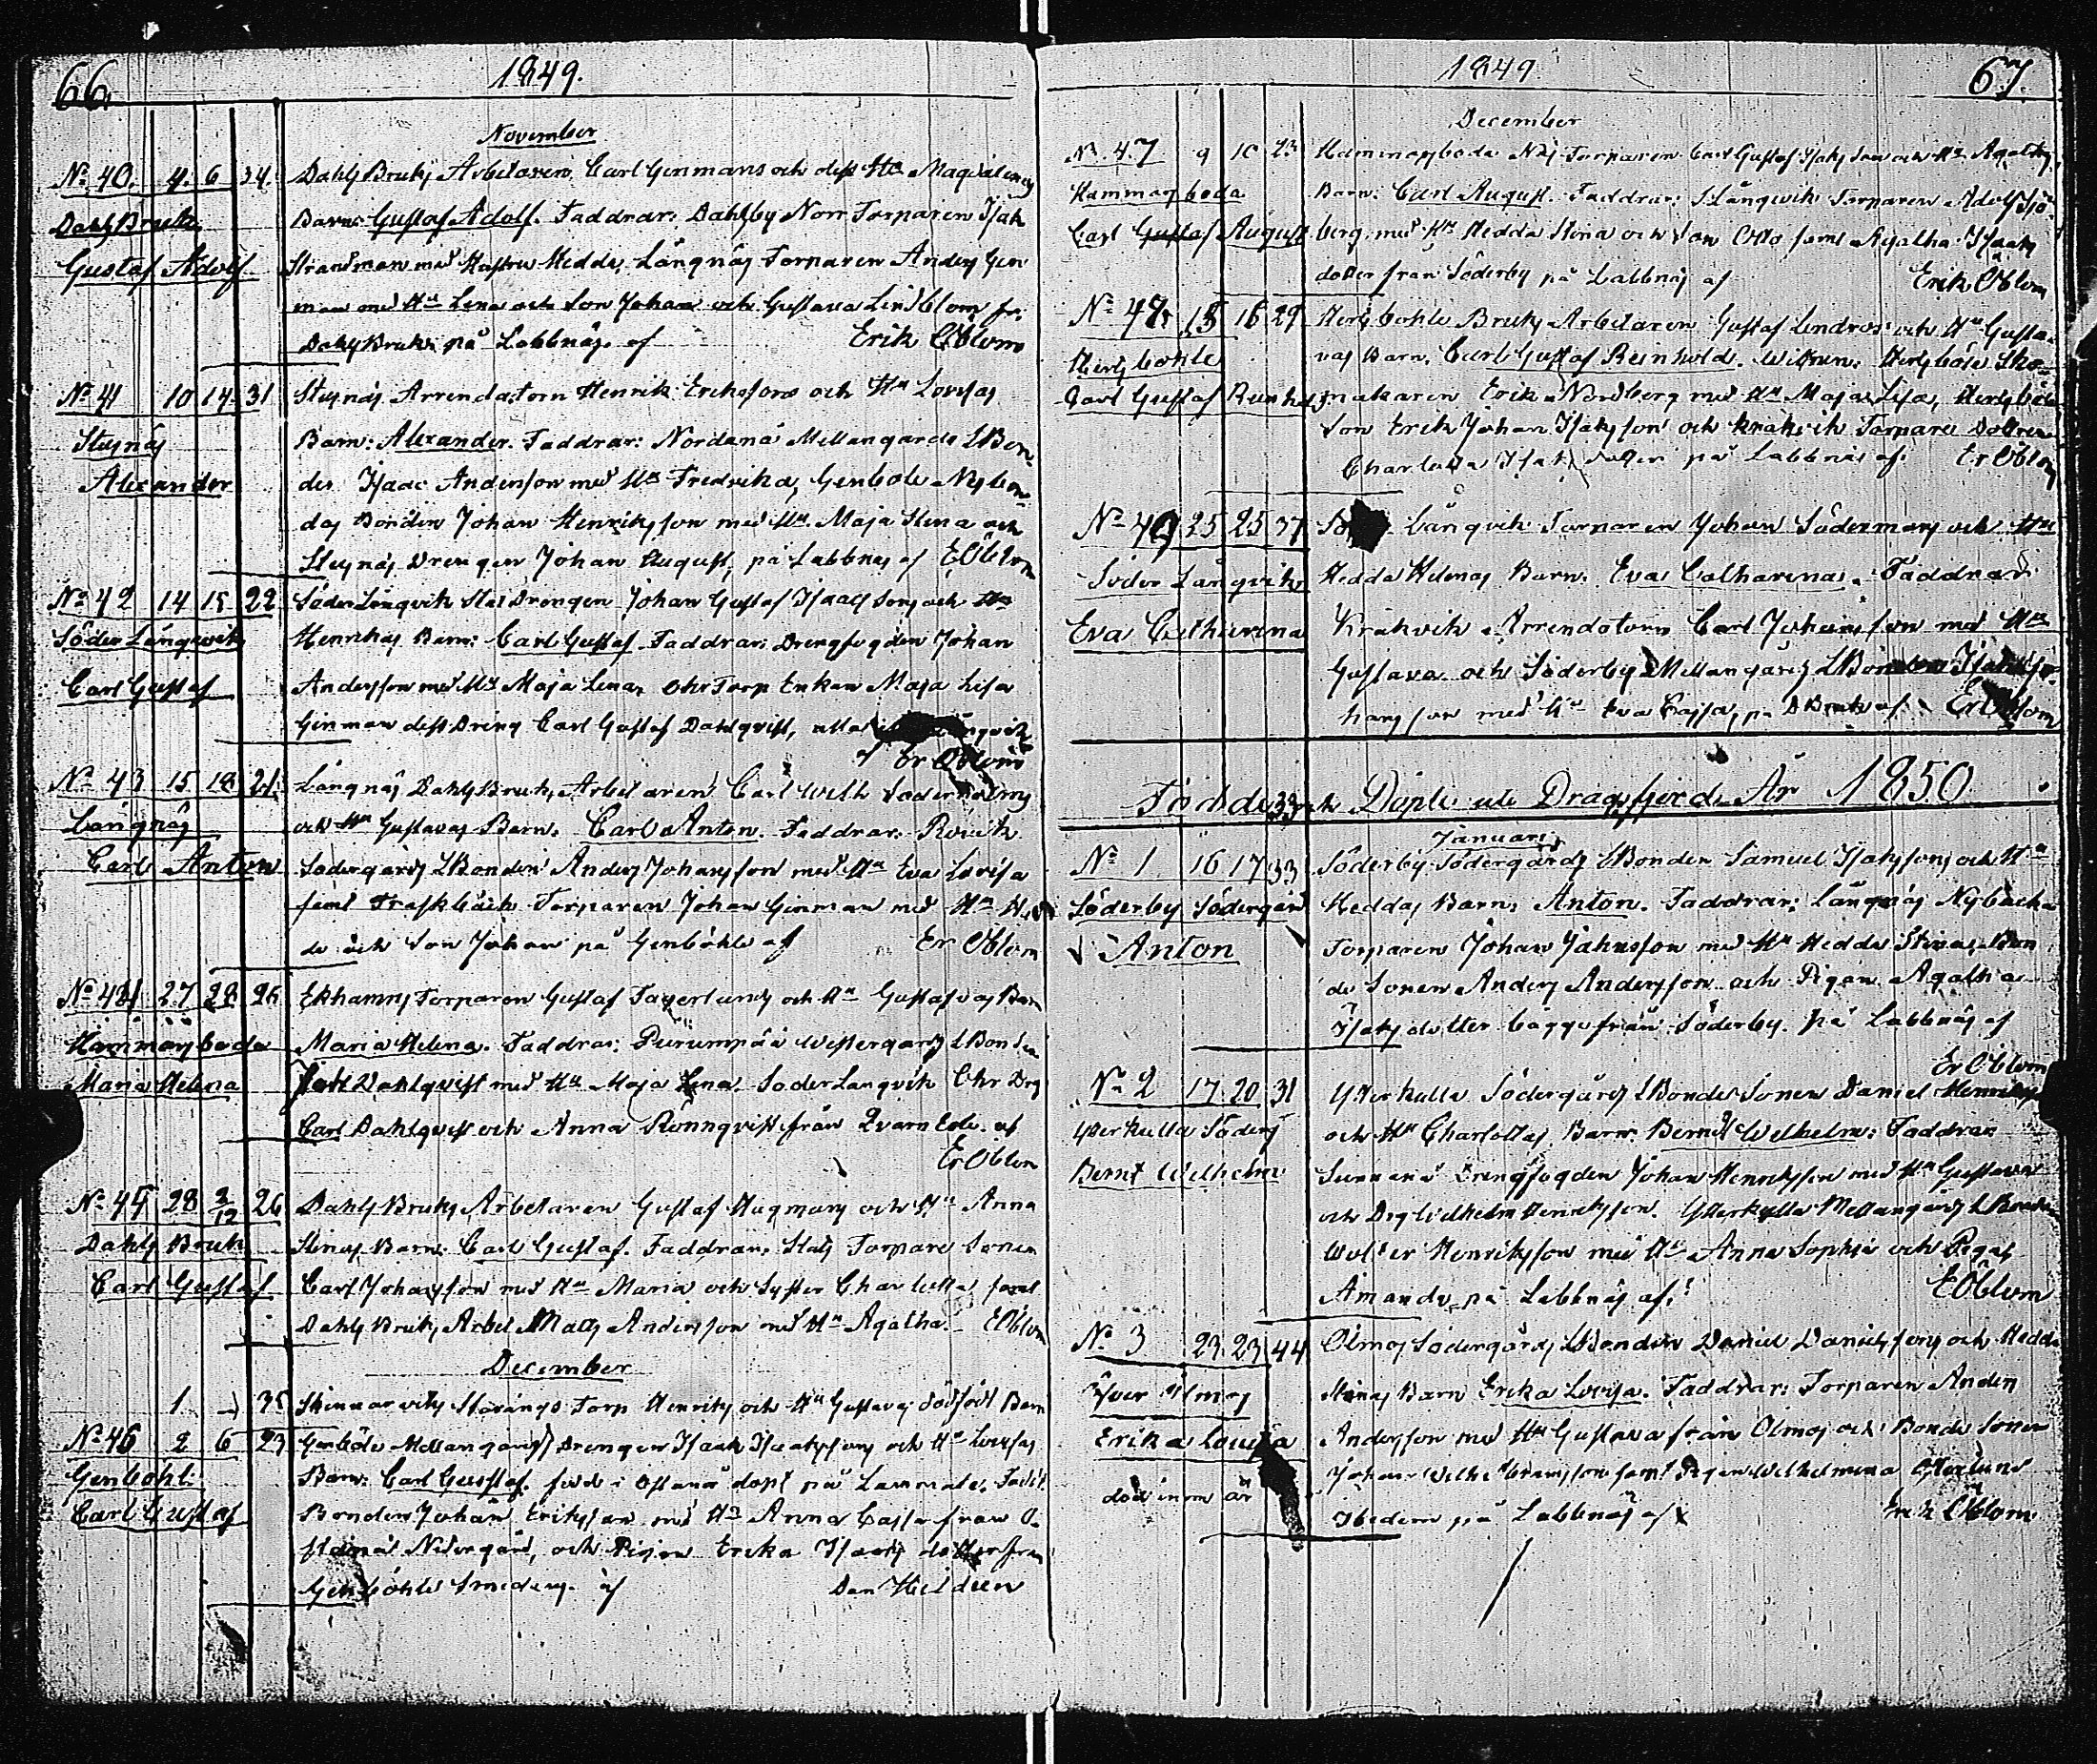 66.
1849.
November
No 40. 4. 6 34. Dahls Bruks Arbetaren Carl Genmans och dess Hu Magdalenas
Dahls Bruk Barn: Gustaf Adolf. Faddrar: Dahlsby Norr Torparen Isak
Gustaf Adolf Strandman med Hustru Hedda, Långnäs Torparen Anders Gen
man med Hu Lena och Son Johan och Gustava Lindblom fr.
Dahls Bruk på Labbnäs af Erik Öblom
No 41 10 14 31 Stusnäs Arrendatorn Henrik Erikssons och Hu Lovisas
Stusnäs Barn: Alexander. Faddrar: Nordanå Mellangårds LBon
Alexander den Isaac Andersson med Hu Fredrika, Genböle Nybon
das Bonden Johan Henriksson med Hu Maja Stena och
Stusnäs Drengen Johan August, på Labbnäs af E Öblom
No 42 14 15 22 Söder Långvik Drengen Johan Gustaf Isaacssons och Hu
Söder Långvik Henrikas Barn: Carl Gustaf. Faddrar: Drengfogden Johan
Carl Gustaf Andersson med Hu Maja Lena, Torp Enkan Maja Lisa
Ginman dess Dreng Carl Gustaf Dahlqvist,
af Er Öblom
No 43 15 18 21 Långnäs Dahls Bruks Arbetaren Carl Wilh Söderholms
Långnäs och Hu Gustavas Barn: Carl Anton. Faddrar: Rövik
Carl Anton Södergårds LBonden Anders Johansson med Hu Eva Lovisa
samt Träskbäck Torparen Johan Ginman med Hu Hed
da och Son Johan på Genböhle af Er Öblom
No 44 27 28 26 Ekhamns Torparen Gustaf Fagerlunds och Hu Gustafvas Barn
Hammarsboda Maria Helena. Faddrar: Purunpää Westergårds LBonden
Maria Helena Dahlqvist med Hu Maja Lena, Söder Långvik Drg
Carl Dahlqvist och Anna Rönnqvist från Qvarn af
Er Öblom
No 45 28 2/12 26 Dahls Bruks Arbetaren Gustaf Hagmans och Hu Anna
Dahls Bruk Stinas Barn: Carl Gustaf. Faddrar: Torpare Sonen
Carl Gustaf Carl Johansson med Hu Maria och Syster Charlotta samt
Dahls Bruks Arbet Mats Andersson med Hu Agatha. E Öblom
December
1 35 Skinnarviks Storängs Torp Henriks och Hu Gustavas dödfödt Barn
No 46 2 6 23 Genböle Mellangårds Drengen Isaak Isaakssons och Hu Lovisas
Genböhle Barn: Carl Gustaf. född i Östanå döpt på Lammala. Fadd:
Carl Gustaf Bonden Johan Eriksson med Hu Anna Cajsa från Ö-
stanå Nedergård, och Pigan Erika Isaaks dotter från
Genböhle Smedens. af Dan Heldeen
1849
67.
December
No 47 9 10 23 Hammarsboda Torparen Carl Gustaf Isaks Son och Hu Agathas
Hammarsboda Barn: Carl August. Faddrar: SLångvik Torparen Adolf Sjö-
Carl Gustaf August berg med Hu Hedda Stina och Son Otto samt Agatha Isaaks
dotter från Söderby på Labbnäs af Erik Öblom
No 48 15 16 29 Hertsböhle Bruks Arbetaren Gustaf Lindros och Hu Gusta-
Hertsböhle vas Barn: Carl Gustaf Reinhold. Wittnen: Hertsböle Sko-
Carl Gustaf Reinhold makaren Erik Nordberg med Hu Maja Lisa, Hertsböle
Son Erik Johan Isaksson och Krakvik Torpare Dottren
Charlotta Isaks dotter på Labbnäs af Er Öblom
No 49 25 25 37 Långvik Torparen Johan Södermans och Hu
Söder Långvik Hedda Helenas Barn: Eva Catharina. Faddrar
Eva Catharina Krakvik Arrendatorn Carl Johansson med Hu
Gustava och Söderby Mellangårds LBonden
hansson med Hu Eva Cajsa, på DBruk af Er Öblom
Födde och Döpte uti Dragsfjerd År 1850
Januari
No 1 16 17 33 Söderby Södergårds LBonden Samuel Isakssons och Hu
Söderby Södergård Heddas Barn: Anton. Faddrar: Långnäs Nybacka
Anton Torparen Johan Johansson med Hu Hedda Stina, Bon
de Sonen Anders Andersson och Pigan Agatha
Isaks dotter begge från Söderby. på Labbnäs af
Er Öblom
No 2 17 20 31 Ytterkulla Södergårds LBonde Sonen Daniel Henrikss
Ytterkulla Söderg och Hu Charlottas Barn: Bernt Wilhelm: Faddrar
Bernt Wilhelm Sunnanå Drengfogden Johan Henriksson med Hu Gustava
och Drg Wilhelm Henriksson. Ytterkulla Mellangårds LBonden
Wolter Henriksson med Hu Anna Sophia och Pigan
Amanda på Labbnäs af: E Öblom
No 3 23 23 44 Ölmos Södergårds LBonden Daniel Danielssons och Hedda
Öfver Ölmos Stinas Barn Erika Lovisa. Faddrar: Torparen Anders
Erika Lovisa Andersson med Hu Gustava från Ölmos och Bonde Sonen
död inom år Johan Wilhelm samt Pigan Wilhelmina Österlund
Ibedem på Labbnäs af Erik Öblom